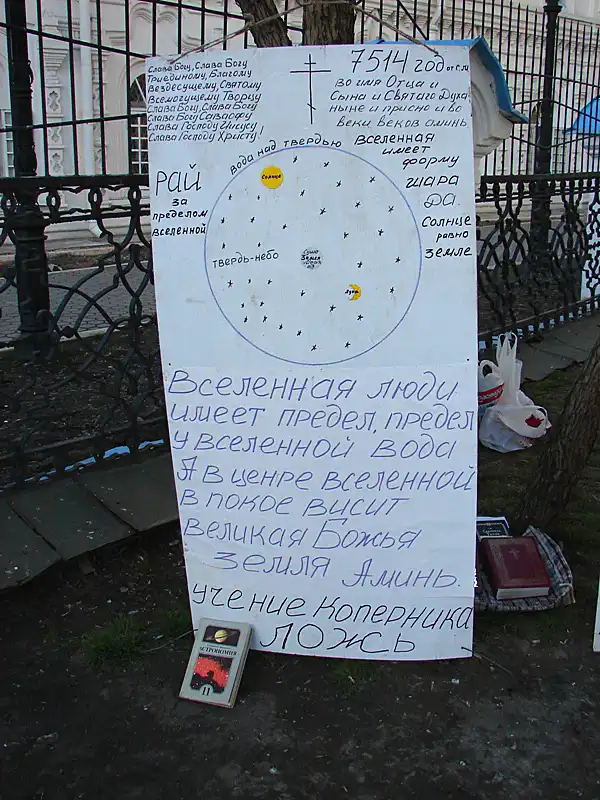 Слава Богу, Слава Богу
Триединому, Благому
Вездесущему, Святому
Всемогущему Творцу
Слава Богу, Слава Богу
Слава Богу Саваофу
Слава Господу Иисусу
Слава Господу Христу!
7514 год от С.М.
Во имя Отца и
Сына и Святого Духа
ныне и присно и во
веки веков аминь
Вселенная
имеет
форму
шара
да.
Солнце
равно
земле
Вода над твердью
РАЙ
за
пределом
вселенной
Солнце
твердь-небо
Земля
Луна
Вселенная люди
имеет предел, предел
у вселенной вода
А в ценре вселенной
в покое висит
великая Божья
земля Аминь.
Учение Коперника
ЛОЖЬ
АСТРОНОМИЯ
11